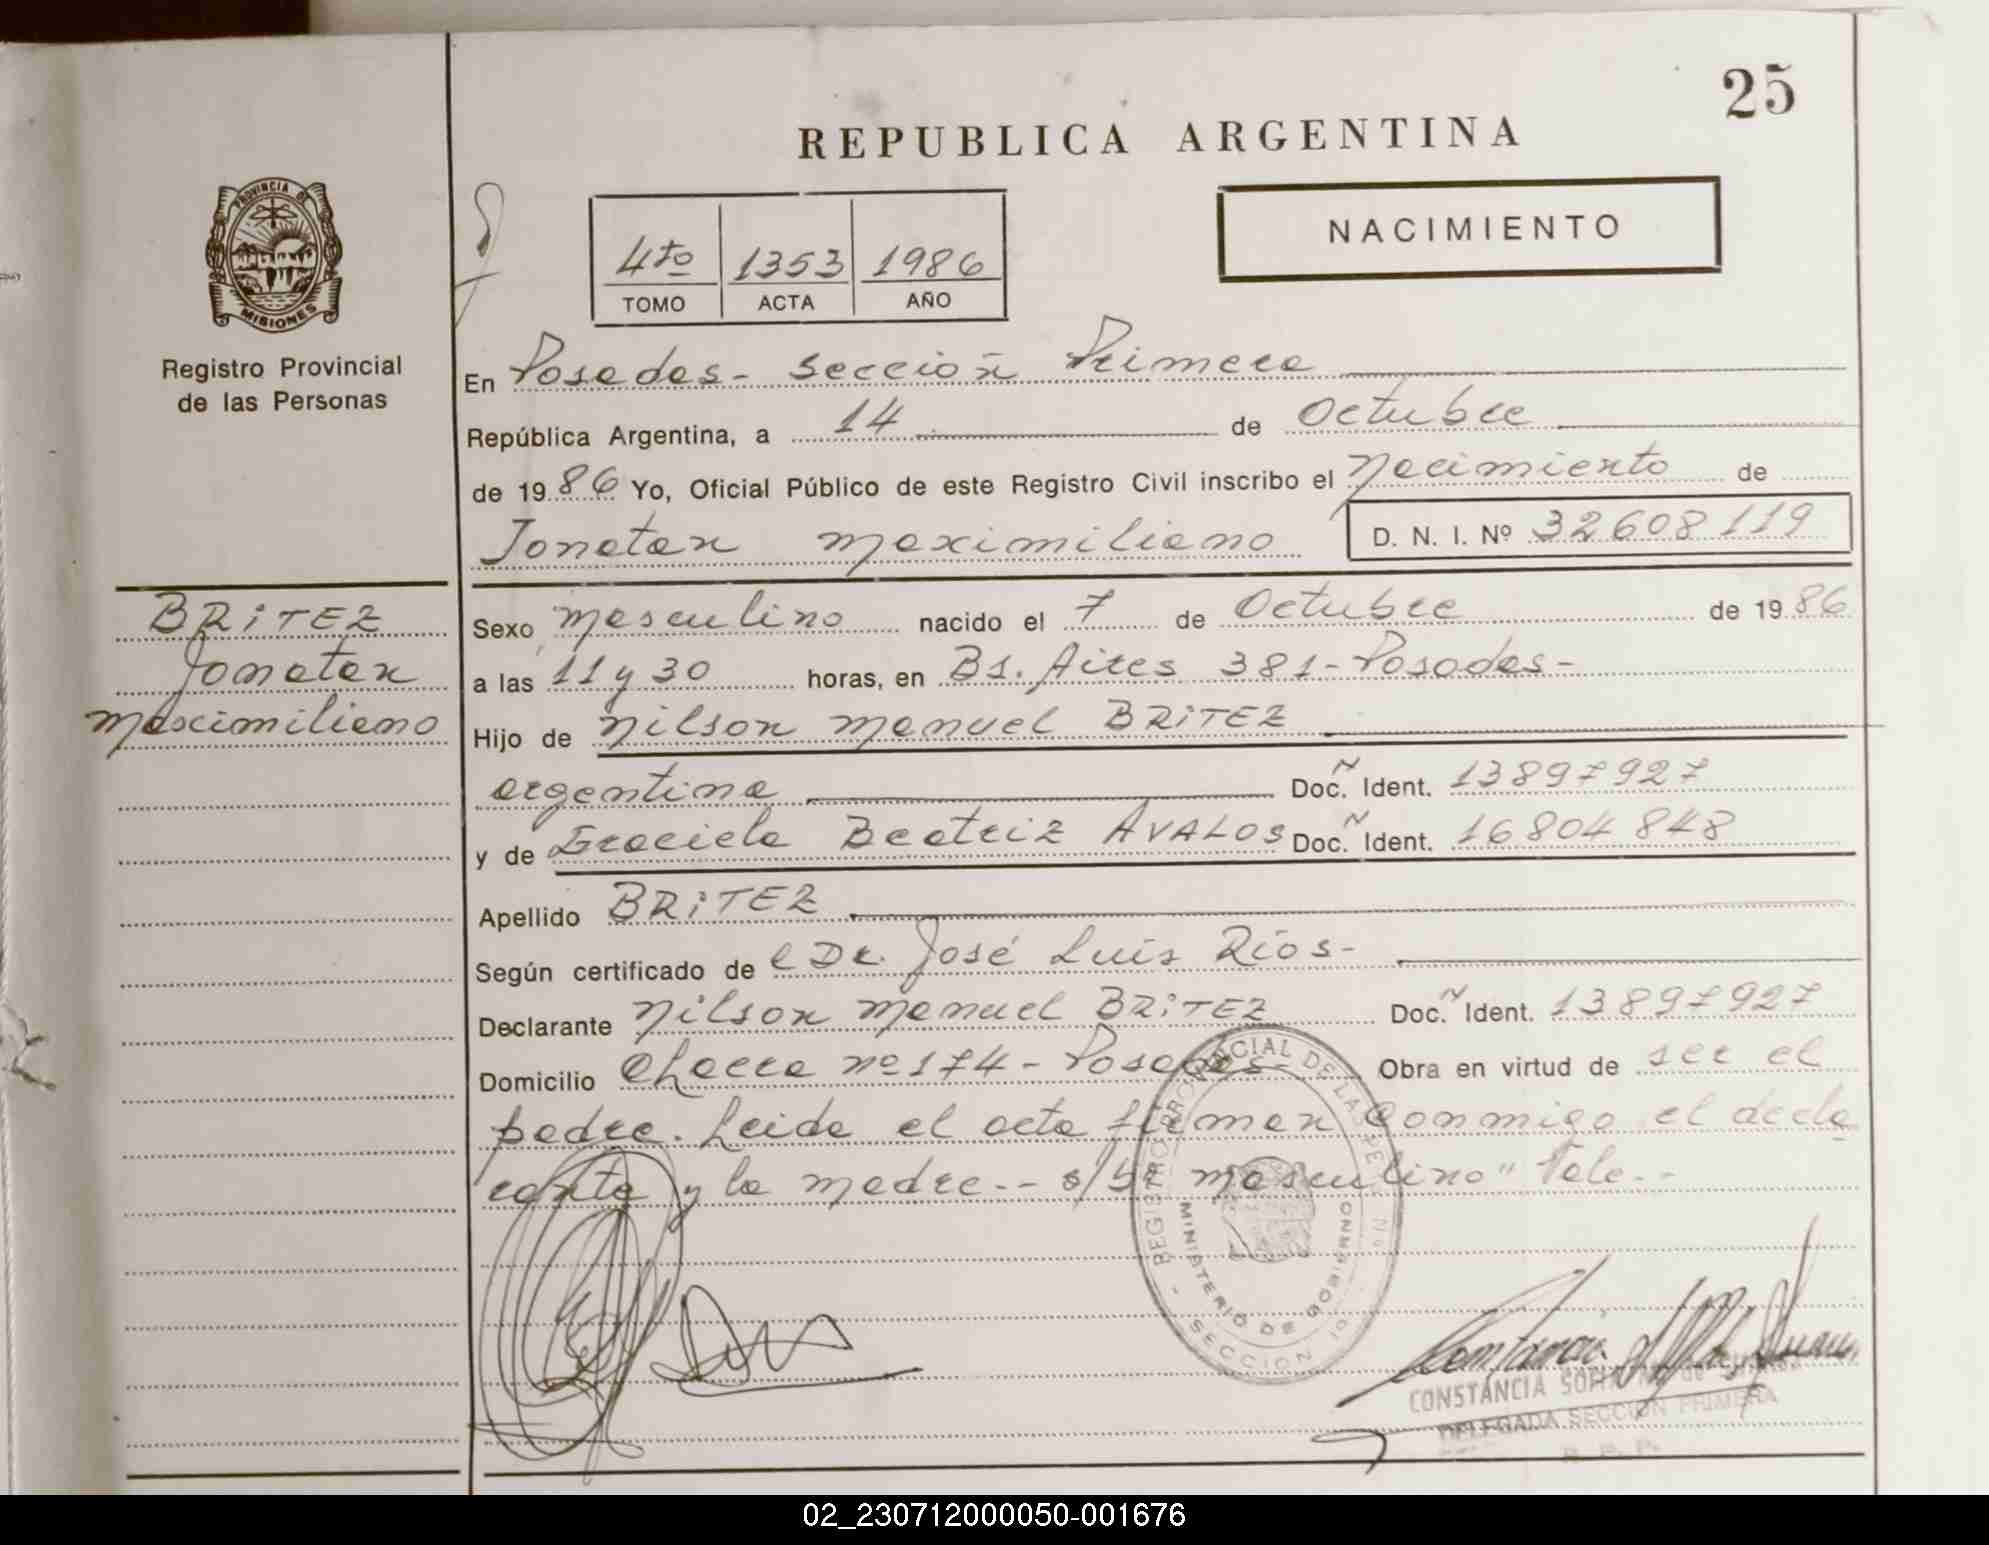 25
REPUBLICA ARGENTINA
PROVINCIA DE
MISIONES
Registro Provincial
de las Personas
4to 1353 1986
TOMO ACTA AÑO
NACIMIENTO
En Posadas - Sección Primera
República Argentina, a 14 de Octubre
de 1986 Yo, Oficial Público de este Registro Civil inscribo el Nacimiento de
Jonatan Maximiliano D. N. I. Nº 32608119
BRiTEZ
Jonatan
Maximiliano
Sexo Masculino nacido el 7 de Octubre de 1986
a las 11 y 30 horas, en Bs. Aires 381 - Posadas -
Hijo de Nilson Manuel BRiTEZ
argentina Doc. Ident. 13897927
y de Graciela Beatriz AVALOS Doc. Ident. 16804848
Apellido BRiTEZ
Según certificado de el Dr. José Luis Ríos -
Declarante Nilson Manuel BRiTEZ Doc. Ident. 13897927
Domicilio Chacra nº 174 - Posadas - Obra en virtud de ser el
padre. Leida el acta firman conmigo el decla
rante y la madre. - - s/br masculino" Vale. - -
REGISTRO PROVINCIAL DE LAS PER
MINISTERIO DE GOBIERNO
SECCION
CONSTANCIA de
DELEGADA SECCION PRIMERA
R. P. P.
02_230712000050-001676